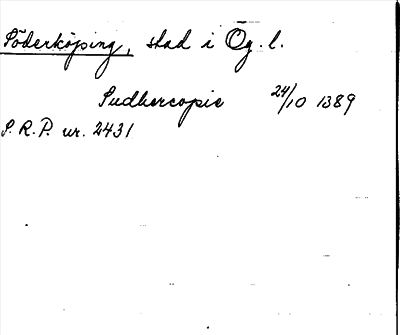 Söderköping, stad i Ög. l.
Sudhercopie 24/10 1389
S.R.P. nr. 2431